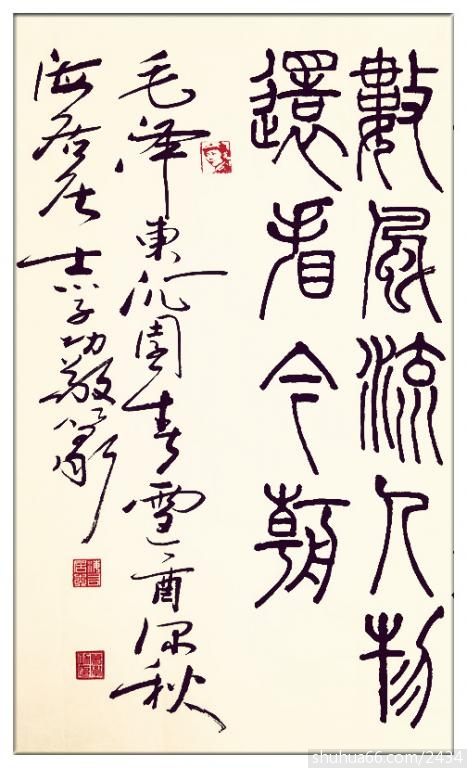 數風流人物
還看今朝
毛泽東沁園春雪酉深秋
海居士功敬篆
shuhua66.com/2434